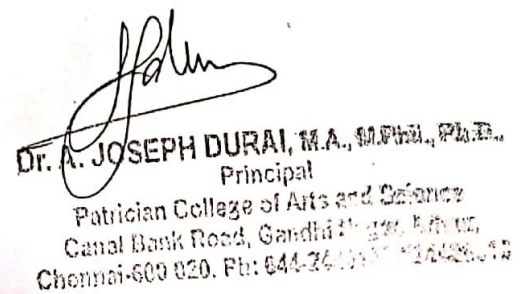 Dr. A. JOSEPH DURAI, M.A., M.Phil., Ph.D.,
Principal
Patrician College of Arts and Science
Canal Bank Road, Gandhi Nagar, Adyar,
Chennai-600 020. Ph: 044-